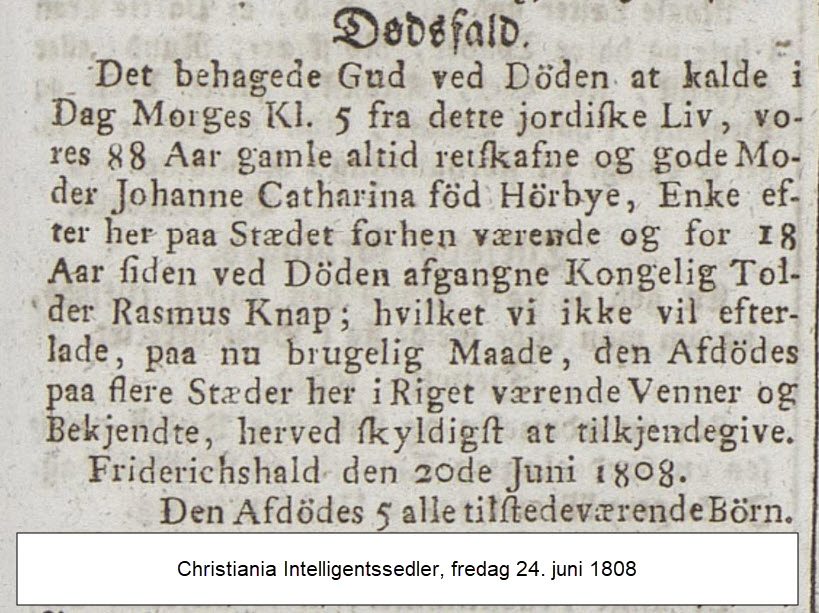 Dødsfald.
Det behagede Gud ved Döden at kalde i
Dag Morges Kl. 5 fra dette jordiſke Liv, vo-
res 88 Aar gamle altid retſkafne og gode Mo-
der Johanne Catharina föd Hörbye, Enke ef-
ter her paa Stædet forhen værende og for 18
Aar ſiden ved Döden afgangne Kongelig Tol-
der Rasmus Knap; hvilket vi ikke vil efter-
lade, paa nu brugelig Maade, den Afdödes
paa flere Stæder her i Riget værende Venner og
Bekjendte, herved ſkyldigſt at tilkjendegive.
Friderichshald den 20de Juni 1808.
Den Afdödes 5 alle tilſtedeværende Börn.
Christiania Intelligentssedler, fredag 24. juni 1808